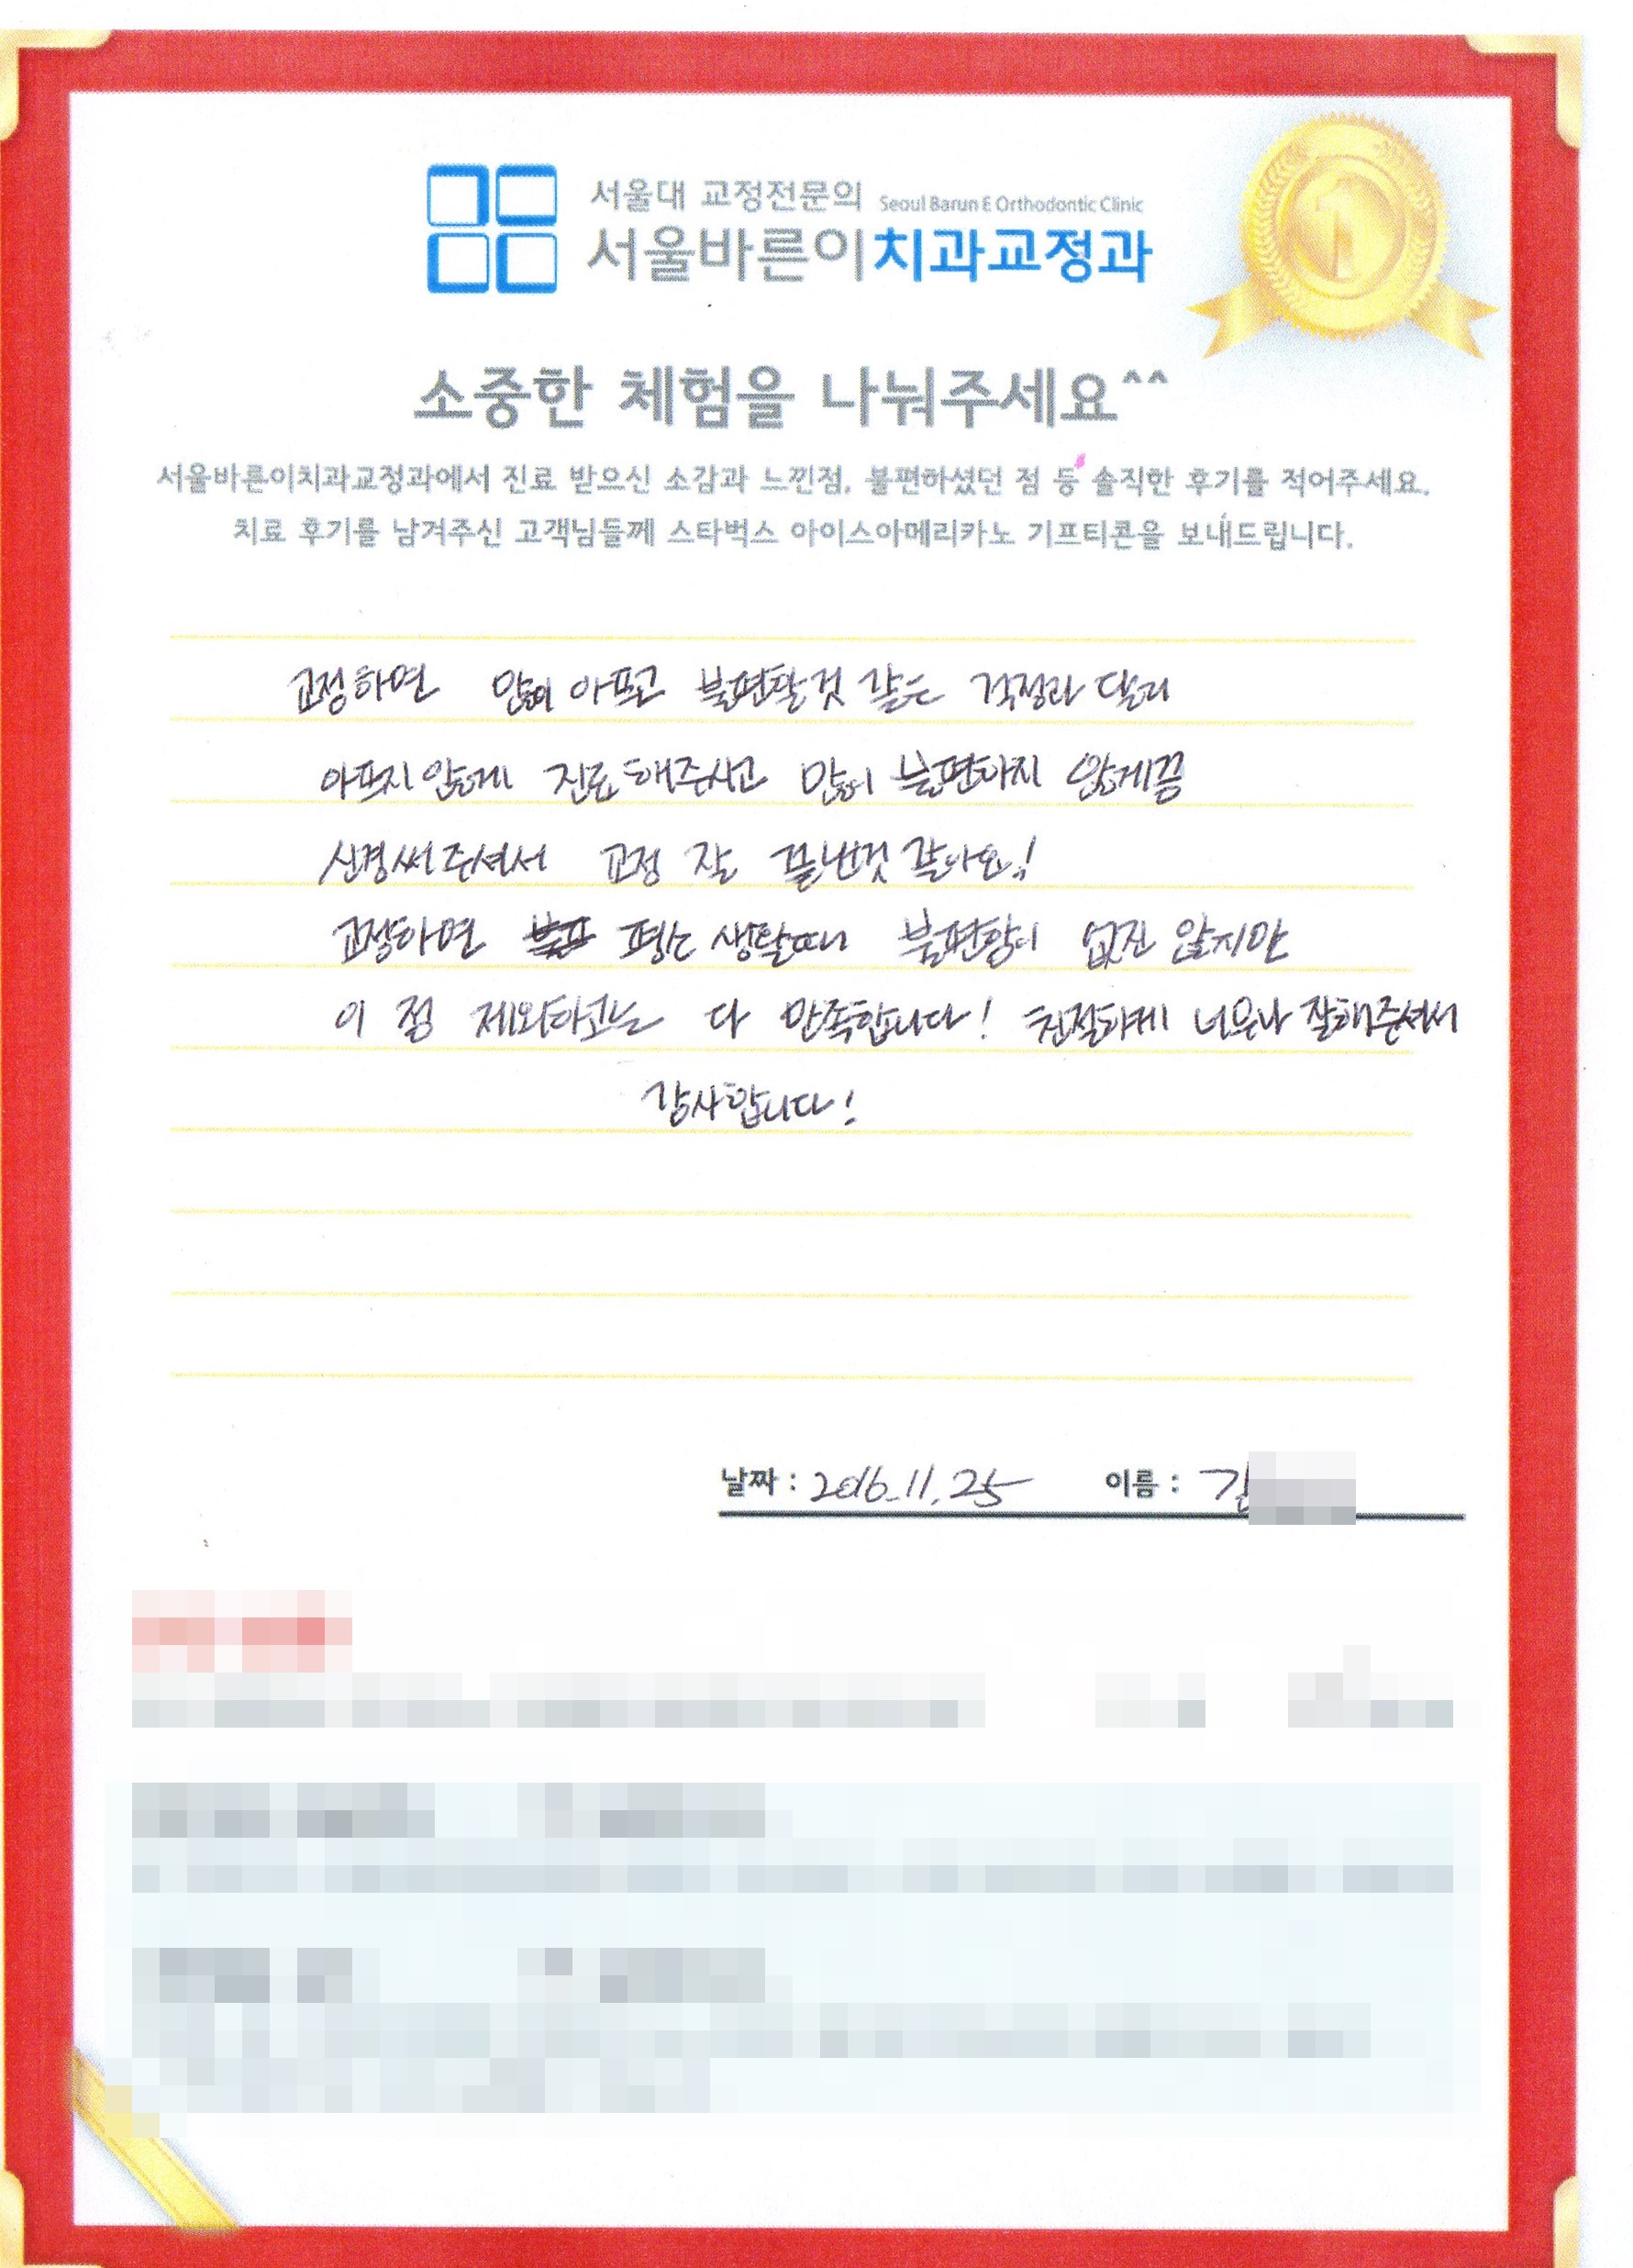 서울대 교정전문의 Seoul Barun E Orthodontic Clinic
서울바른이치과교정과
1
소중한 체험을 나눠주세요^^
서울바른이치과교정과에서 진료 받으신 소감과 느낀점, 불편하셨던 점 등 솔직한 후기를 적어주세요.
치료 후기를 남겨주신 고객님들께 스타벅스 아이스아메리카노 기프티콘을 보내드립니다.
교정하면 많이 아프고 불편할것 같은 걱정과 달리
아프지 않게 진료해주시고 많이 불편하지 않게끔
신경써주셔서 교정 잘 끝낸것 같아요!
교정하면 평소 생활때 불편함이 없진 않지만
이 점 제외하고는 다 만족합니다! 친절하게 너무나 잘해주셔서
감사합니다!
날짜 : 2016.11.25 이름 : 김